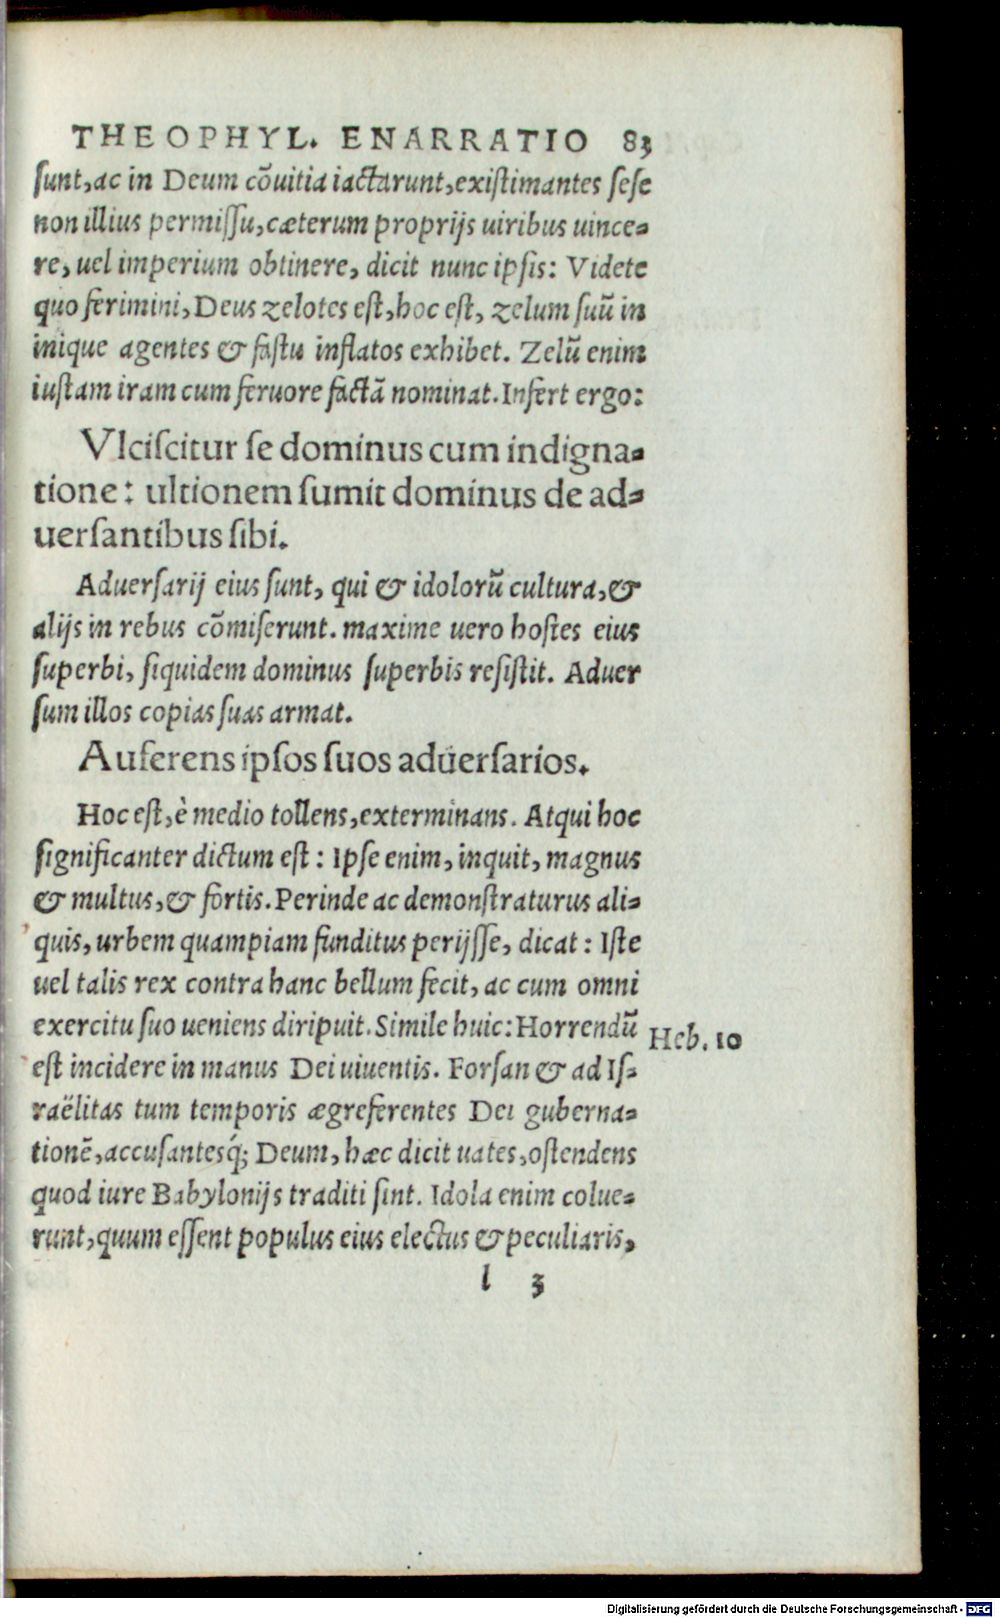 THEOPHYL. ENARRATIO 83
sunt, ac in Deum cõuitia iactarunt, existimantes sese
non illius permissu, cæterum proprijs uiribus uince-
re, uel imperium obtinere, dicit nunc ipsis: Videte
quo ferimini, Deus zelotes est, hoc est, zelum suũ in
inique agentes & fastu inflatos exhibet. Zelũ enim
iustam iram cum feruore factã nominat. Infert ergo:
Vlciscitur se dominus cum indigna-
tione: ultionem sumit dominus de ad-
uersantibus sibi.
Aduersarij eius sunt, qui & idolorũ cultura, &
alijs in rebus cõmiserunt. maxime uero hostes eius
superbi, siquidem dominus superbis resistit. Aduer
sum illos copias suas armat.
Auferens ipsos suos aduersarios.
Hoc est, è medio tollens, exterminans. Atqui hoc
significanter dictum est: Ipse enim, inquit, magnus
& multus, & fortis. Perinde ac demonstraturus ali-
quis, urbem quampiam funditus perijsse, dicat: Iste
uel talis rex contra hanc bellum fecit, ac cum omni
exercitu suo ueniens diripuit. Simile huic: Horrendũ
Heb. 10
est incidere in manus Dei uiuentis. Forsan & ad Is-
raëlitas tum temporis ægreferentes Dei guberna-
tionẽ, accusantesq́; Deum, hæc dicit uates, ostendens
quod iure Babylonijs traditi sint. Idola enim colue-
runt, quum essent populus eius electus & peculiaris,
l 3
Digitalisierung gefördert durch die Deutsche Forschungsgemeinschaft - DFG